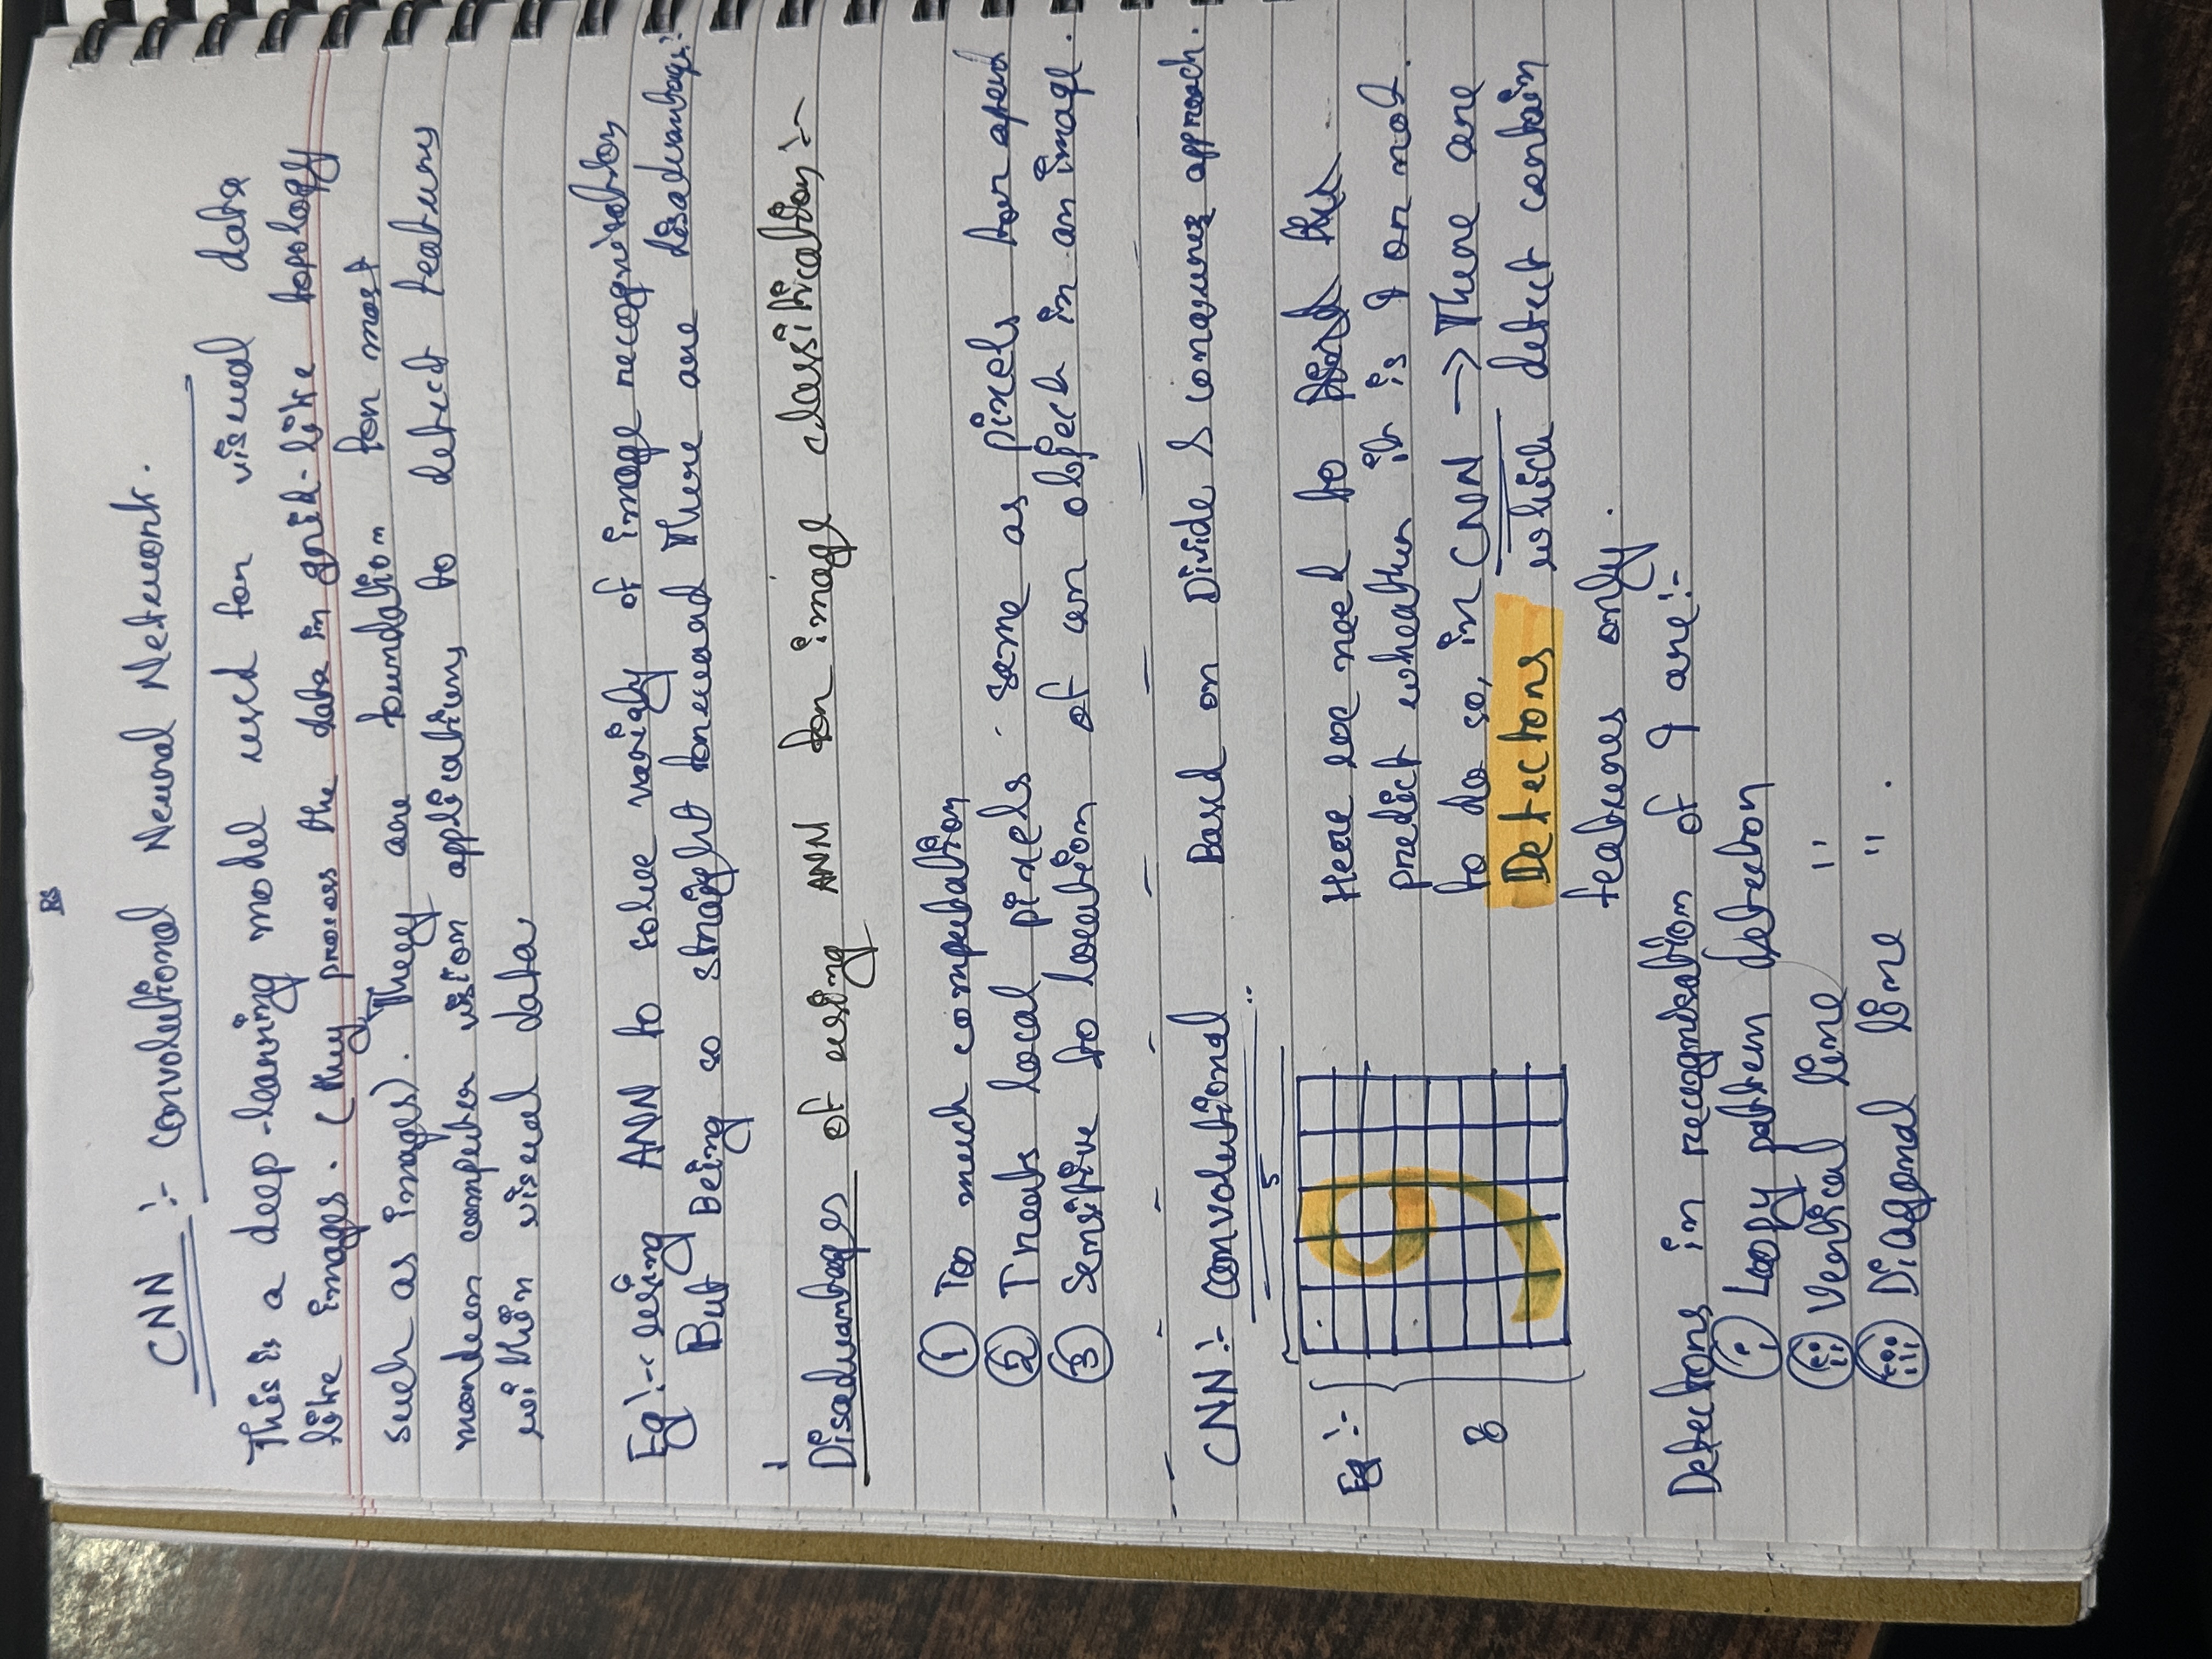 RS
CNN :- Convolutional Neural Network.
This is a deep-learning model used for visual data
like images. (they process the data in grid-like topology
such as images). They are foundation for most
mordern computer vision applications to detect features
within visual data
Eg :- using ANN to solve variety of image recognisation
But Being so straight forward There are disadvantages:
Disadvantages of using ANN for image classification :-
① Too much computation
② Treats local pixels same as pixels far apart
③ Sensitive to location of an object in an image.
CNN :- Convolutional Based on Divide & conqurer approach.
5
Eg :- Here we need to
predict wheather it is 9 or not.
8 to do so, in CNN → There are
Detectors which detect certain
features only.
9
Detectors in recognisation of 9 are :-
(i) Loopy pattern detector
(ii) Vertical line "
(iii) Diagonal line " .